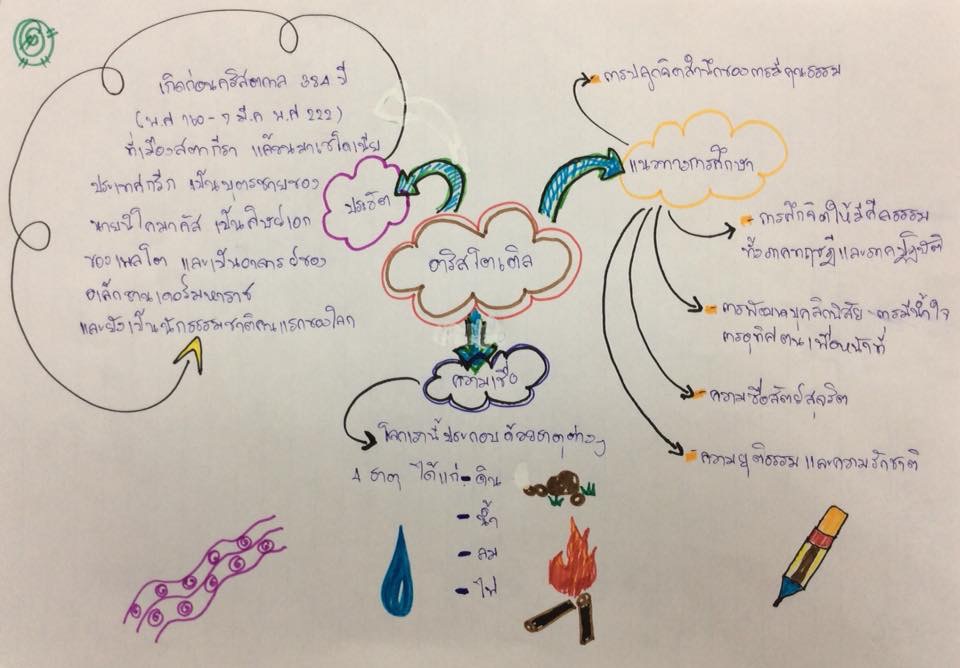 อริสโตเติล
ประวัติ
เกิดก่อนคริสตกาล 384 ปี
(พ.ศ 160 - 7 มี.ค พ.ศ 222)
ที่เมืองสตากีรา แคว้นมาเซโดเนีย
ประเทศกรีก เป็นบุตรชายของ
นายนิโคมาคัส เป็นศิษย์เอก
ของเพลโต และเป็นอาจารย์ของ
อเล็กซานเดอร์มหาราช
และยังเป็นนักธรรมชาติคนแรกของโลก
แนวทางการศึกษา
การปลูกจิตสำนึกของการมีคุณธรรม
- การฝึกจิตให้มีศีลธรรม
ทั้งภาคทฤษฎีและภาคปฏิบัติ
- การพัฒนาบุคลิกนิสัย การมีน้ำใจ
การอุทิศตนเพื่อหน้าที่
- ความซื่อสัตย์สุจริต
- ความยุติธรรม และความรักชาติ
ความเชื่อ
โลกเรานี้ประกอบด้วยธาตุต่างๆ
4 ธาตุ ได้แก่ - ดิน
- น้ำ
- ลม
- ไฟ